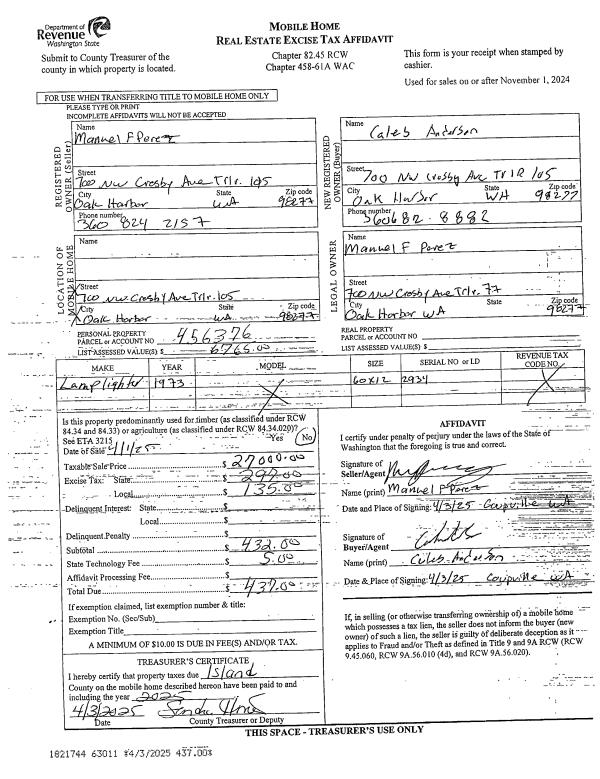 Department of
Revenue
Washington State
Submit to County Treasurer of the
county in which property is located.
MOBILE HOME
REAL ESTATE EXCISE TAX AFFIDAVIT
Chapter 82.45 RCW
Chapter 458-61A WAC
This form is your receipt when stamped by
cashier.
Used for sales on or after November 1, 2024
FOR USE WHEN TRANSFERRING TITLE TO MOBILE HOME ONLY
PLEASE TYPE OR PRINT
INCOMPLETE AFFIDAVITS WILL NOT BE ACCEPTED
REGISTERED
OWNER (Seller)
Name
Manuel F Perez
Street
700 NW Crosby Ave Trlr. 105
City State Zip code
Oak Harbor WA 98277
Phone number
360 824 2157
NEW REGISTERED
OWNER (Buyer)
Name
Caleb Anderson
Street
700 NW Crosby Ave Trlr 105
City State Zip code
Oak Harbor WA 98277
Phone number
360 682-8882
LOCATION OF
MOBILE HOME
Name
Street
700 NW Crosby Ave Trlr. 105
City State Zip code
Oak Harbor WA 98277
LEGAL OWNER
Name
Manuel F Perez
Street
700 NW Crosby Ave Trlr. 77
City State Zip code
Oak Harbor WA 98277
PERSONAL PROPERTY
PARCEL or ACCOUNT NO 456376
LIST ASSESSED VALUE(S) $ 6765.00
REAL PROPERTY
PARCEL or ACCOUNT NO
LIST ASSESSED VALUE(S) $
MAKE YEAR MODEL SIZE SERIAL NO or I.D REVENUE TAX CODE NO.
Lamplighter 1973 X 60x12 2934 X
Is this property predominantly used for timber (as classified under RCW
84.34 and 84.33) or agriculture (as classified under RCW 84.34.020)?
See ETA 3215 Yes No
Date of Sale 4/1/25
Taxable Sale Price $ 27000.00
Excise Tax: State $ 297.00
Local $ 135.00
Delinquent Interest: State $
Local $
Delinquent Penalty $
Subtotal $ 432.00
State Technology Fee $ 5.00
Affidavit Processing Fee $
Total Due $ 437.00
If exemption claimed, list exemption number & title:
Exemption No. (Sec/Sub)
Exemption Title
A MINIMUM OF $10.00 IS DUE IN FEE(S) AND/OR TAX.
TREASURER'S CERTIFICATE
I hereby certify that property taxes due Island
County on the mobile home described hereon have been paid to and
including the year 2025
4/3/2025
Date County Treasurer or Deputy
AFFIDAVIT
I certify under penalty of perjury under the laws of the State of
Washington that the foregoing is true and correct.
Signature of
Seller/Agent
Name (print) Manuel F Perez
Date and Place of Signing: 4/3/25 Coupville WA
Signature of
Buyer/Agent
Name (print) Caleb Anderson
Date & Place of Signing: 4/3/25 Coupville WA
If, in selling (or otherwise transferring ownership of) a mobile home
which possesses a tax lien, the seller does not inform the buyer (new
owner) of such a lien, the seller is guilty of deliberate deception as it
applies to Fraud and/or Theft as defined in Title 9 and 9A RCW (RCW
9.45.060, RCW 9A.56.010 (4d), and RCW 9A.56.020).
THIS SPACE - TREASURER'S USE ONLY
1821744 63011 *4/3/2025 437.00*